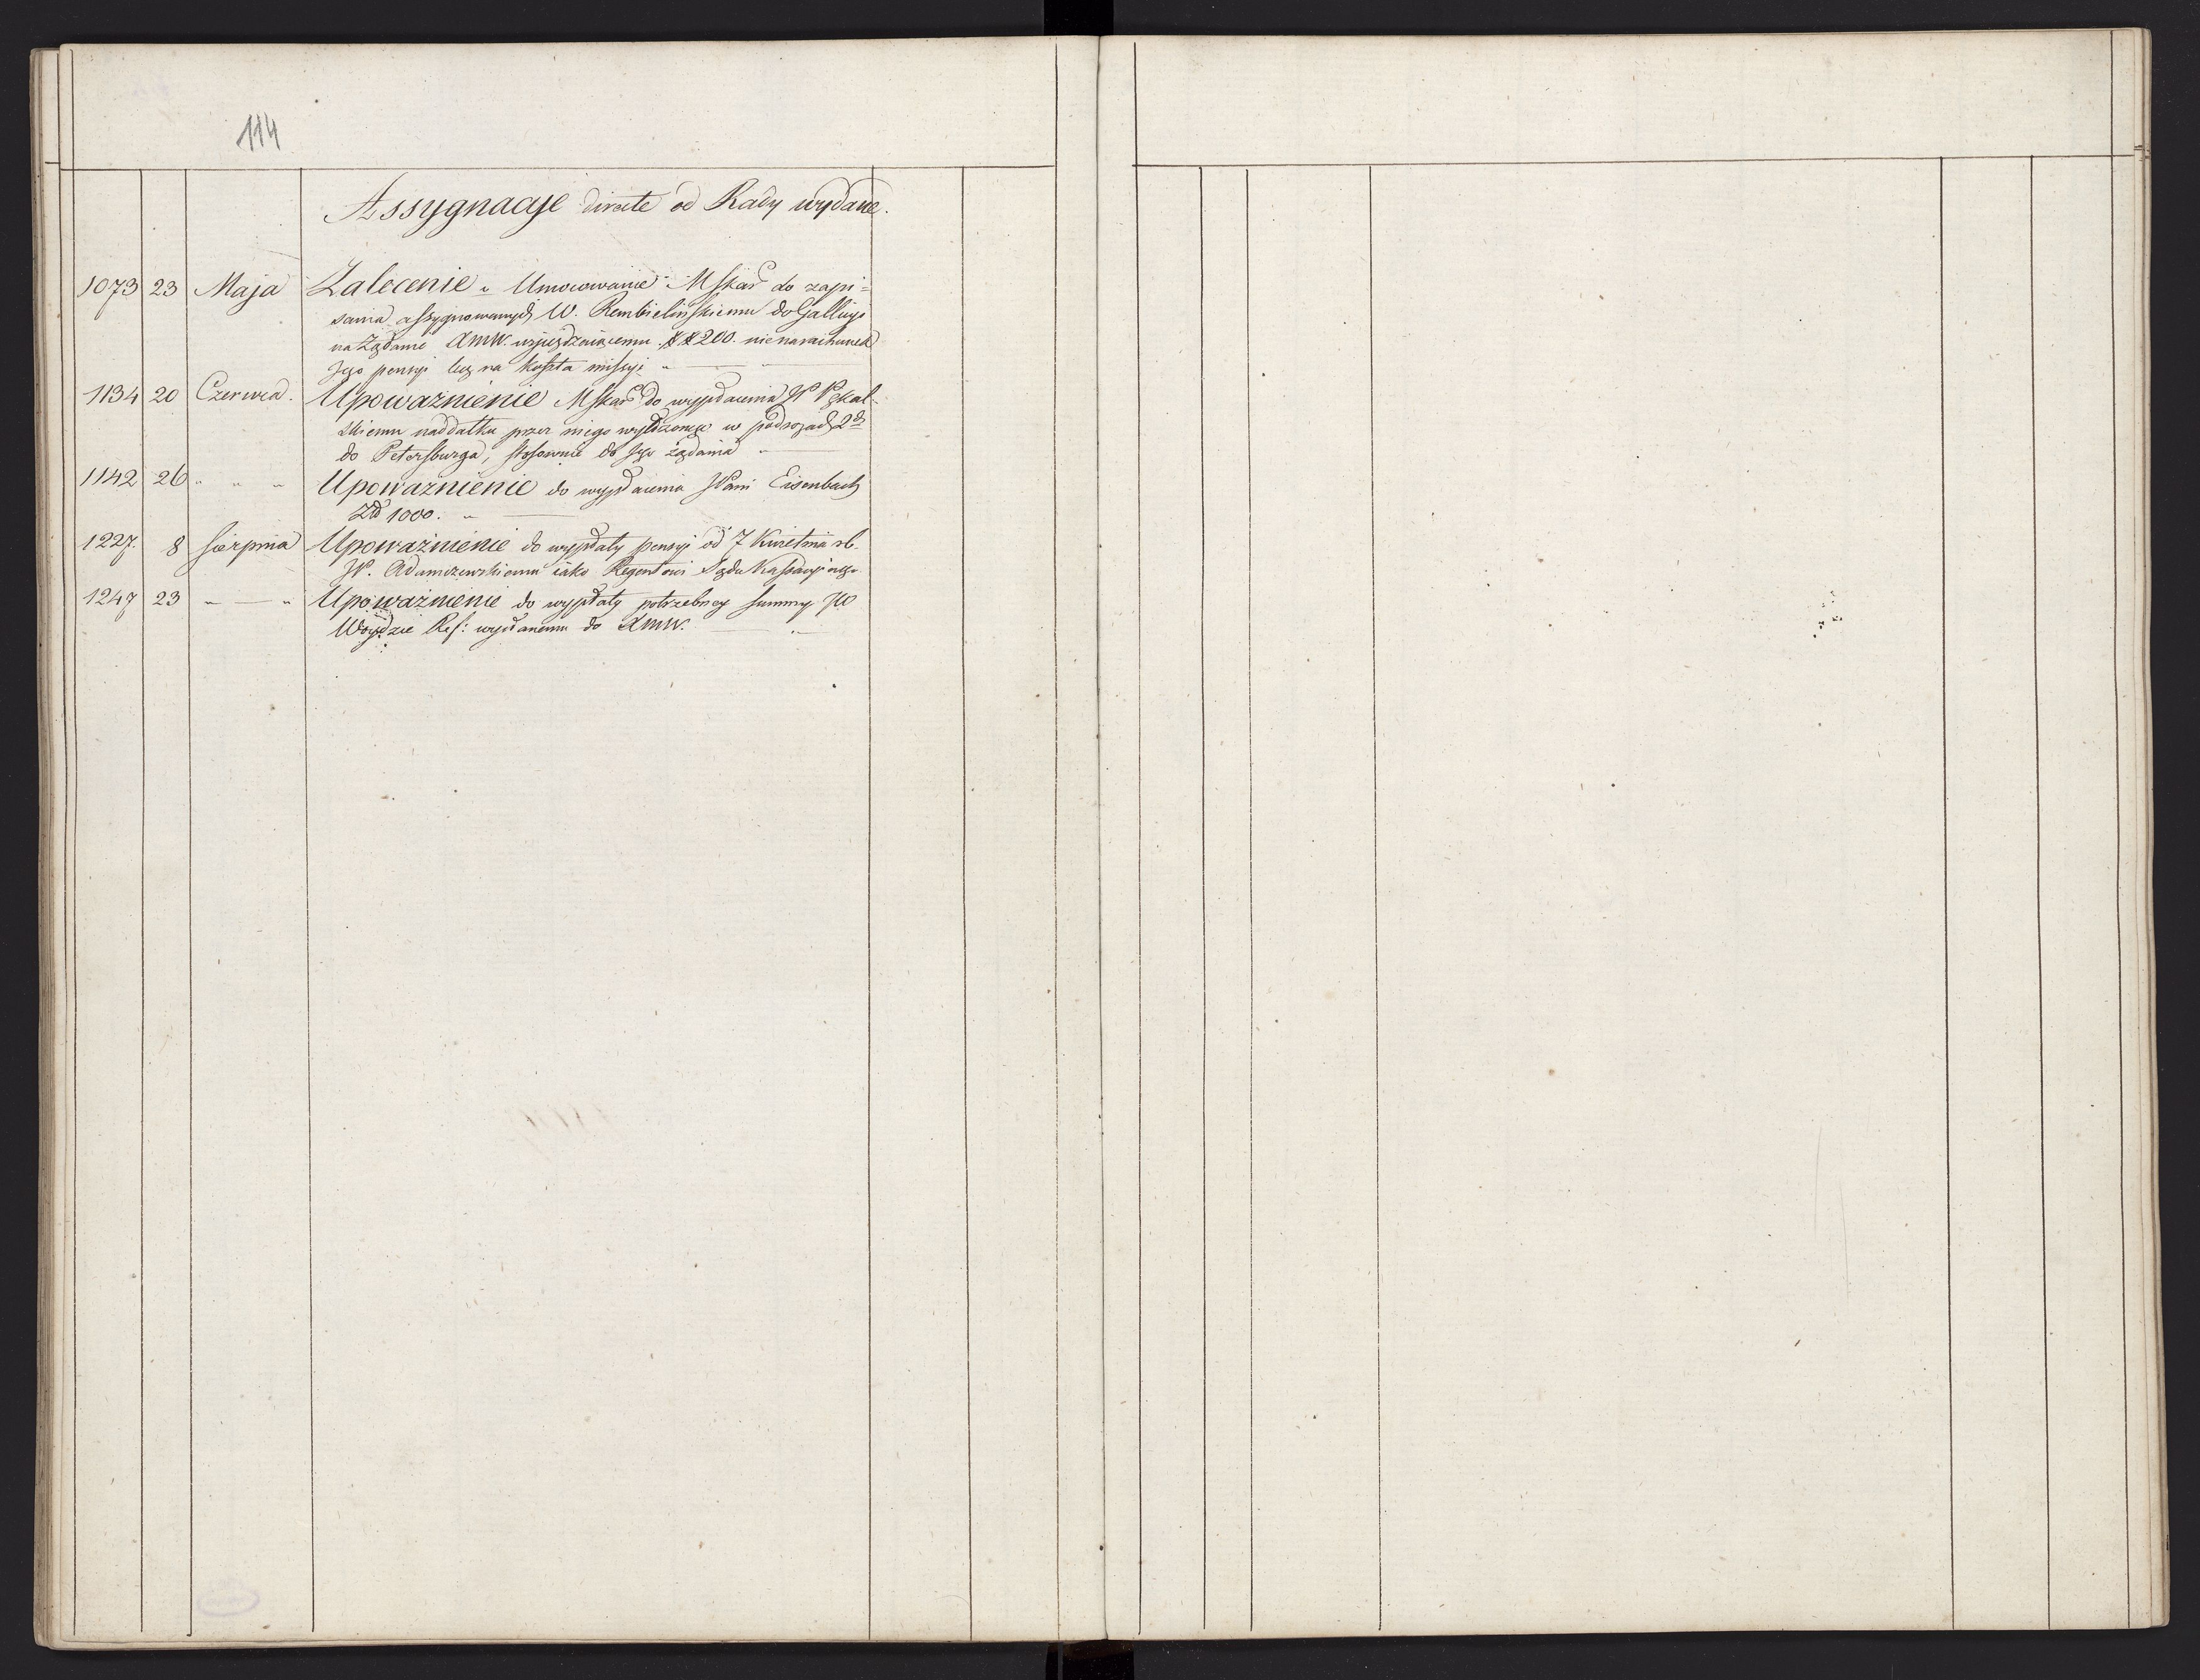 114
Assygnacyje directe od Rady wydane.
1073 23 Maja Zalecenie „ Umocowanie MSkar do zapi=
sania assygnowanych W. Rembielinskiemu do Gallicyi
na żądanie AMW. wyieżdzaiącemu ## 200. nie na rachunek
Jego pensyi lecz na koszta missyi „ — „
1134 20 Czerwca. Upoważnienie MSkar do wypłacenia JP Pękal-
skiemu naddatku przez niego wyłożonego w podrożach 2ch
do Petersburga, stosownie do Jego żądania „
1142 26 „ „ „ Upoważnienie do wypłacenia JPani Eisenbach
Złł 1000. „ —
1227. 8 Sierpnia Upoważnienie do wypłaty pensyi od 7 Kwietnia rb.
JP. Adamczewskiemu iako Regentowi Sądu Kassacyinego
1247 23 „ — „ Upoważnienie do wypłaty potrzebney summy JW
Woydzie Ref: wysłanemu do AMW. — „ —